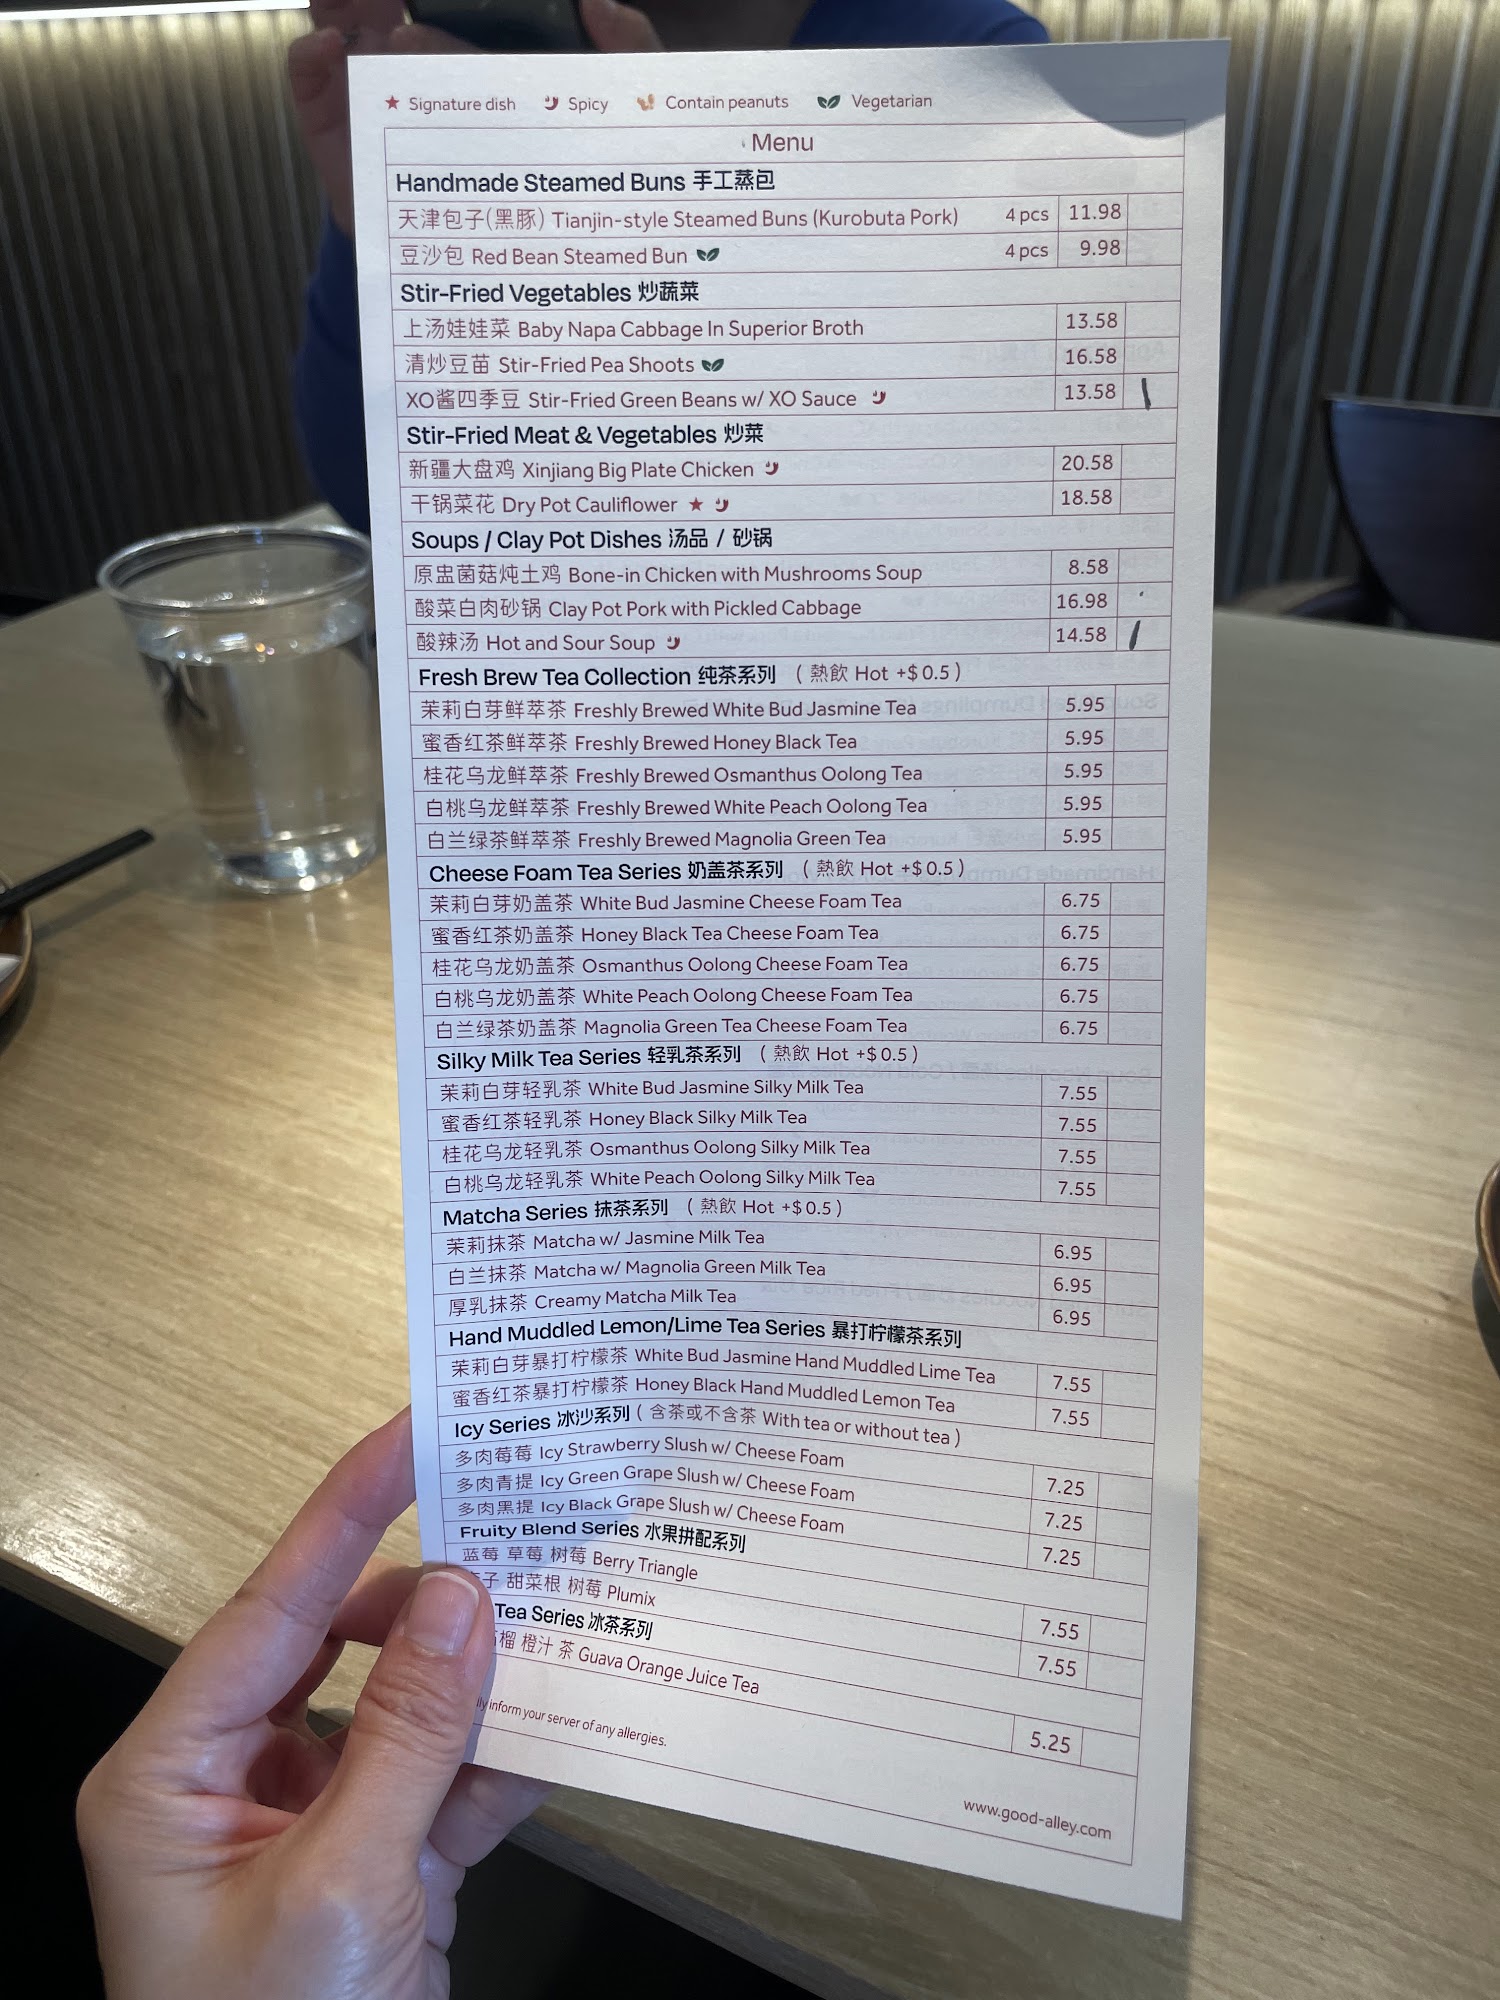 Signature dish Spicy Contain peanuts Vegetarian
Menu
Handmade Steamed Buns 手工蒸包
天津包子(黑豚) Tianjin-style Steamed Buns (Kurobuta Pork) 4 pcs 11.98
豆沙包 Red Bean Steamed Bun 4 pcs 9.98
Stir-Fried Vegetables 炒蔬菜
上汤娃娃菜 Baby Napa Cabbage In Superior Broth 13.58
清炒豆苗 Stir-Fried Pea Shoots 16.58
XO酱四季豆 Stir-Fried Green Beans w/ XO Sauce 13.58
Stir-Fried Meat & Vegetables 炒菜
新疆大盘鸡 Xinjiang Big Plate Chicken 20.58
干锅菜花 Dry Pot Cauliflower 18.58
Soups / Clay Pot Dishes 汤品 / 砂锅
原盅菌菇炖土鸡 Bone-in Chicken with Mushrooms Soup 8.58
酸菜白肉砂锅 Clay Pot Pork with Pickled Cabbage 16.98
酸辣汤 Hot and Sour Soup 14.58
Fresh Brew Tea Collection 纯茶系列 ( 熱飲 Hot +$0.5 )
茉莉白芽鲜萃茶 Freshly Brewed White Bud Jasmine Tea 5.95
蜜香红茶鲜萃茶 Freshly Brewed Honey Black Tea 5.95
桂花乌龙鲜萃茶 Freshly Brewed Osmanthus Oolong Tea 5.95
白桃乌龙鲜萃茶 Freshly Brewed White Peach Oolong Tea 5.95
白兰绿茶鲜萃茶 Freshly Brewed Magnolia Green Tea 5.95
Cheese Foam Tea Series 奶盖茶系列 ( 熱飲 Hot +$0.5 )
茉莉白芽奶盖茶 White Bud Jasmine Cheese Foam Tea 6.75
蜜香红茶奶盖茶 Honey Black Tea Cheese Foam Tea 6.75
桂花乌龙奶盖茶 Osmanthus Oolong Cheese Foam Tea 6.75
白桃乌龙奶盖茶 White Peach Oolong Cheese Foam Tea 6.75
白兰绿茶奶盖茶 Magnolia Green Tea Cheese Foam Tea 6.75
Silky Milk Tea Series 轻乳茶系列 ( 熱飲 Hot +$0.5 )
茉莉白芽轻乳茶 White Bud Jasmine Silky Milk Tea 7.55
蜜香红茶轻乳茶 Honey Black Silky Milk Tea 7.55
桂花乌龙轻乳茶 Osmanthus Oolong Silky Milk Tea 7.55
白桃乌龙轻乳茶 White Peach Oolong Silky Milk Tea 7.55
Matcha Series 抹茶系列 ( 熱飲 Hot +$0.5 )
茉莉抹茶 Matcha w/ Jasmine Milk Tea 6.95
白兰抹茶 Matcha w/ Magnolia Green Milk Tea 6.95
厚乳抹茶 Creamy Matcha Milk Tea 6.95
Hand Muddled Lemon/Lime Tea Series 暴打柠檬茶系列
茉莉白芽暴打柠檬茶 White Bud Jasmine Hand Muddled Lime Tea 7.55
蜜香红茶暴打柠檬茶 Honey Black Hand Muddled Lemon Tea 7.55
Icy Series 冰沙系列 ( 含茶或不含茶 With tea or without tea )
多肉莓莓 Icy Strawberry Slush w/ Cheese Foam 7.25
多肉青提 Icy Green Grape Slush w/ Cheese Foam 7.25
多肉黑提 Icy Black Grape Slush w/ Cheese Foam 7.25
Fruity Blend Series 水果拼配系列
蓝莓 草莓 树莓 Berry Triangle 7.55
子 甜菜根 树莓 Plumix 7.55
Tea Series 冰茶系列
榴 橙汁 茶 Guava Orange Juice Tea 5.25
inform your server of any allergies.
www.good-alley.com